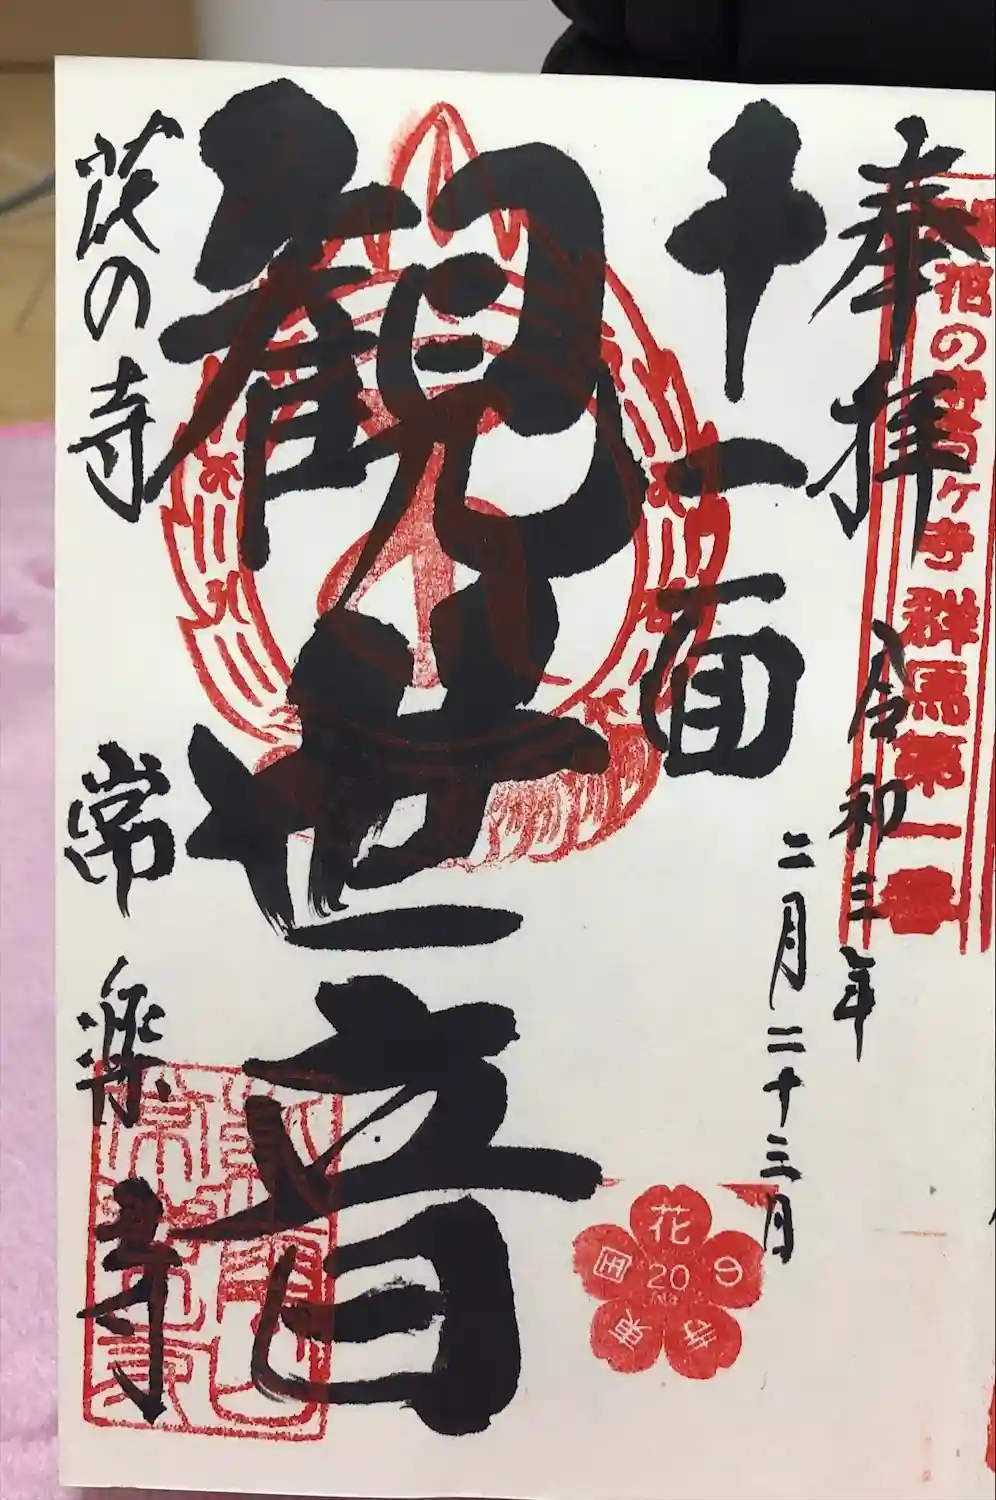 奉拝
令和三年
二月二十三月
十一面
観世音
茨の寺
常楽寺
花の寺
群馬第一番
花の寺
東国
20